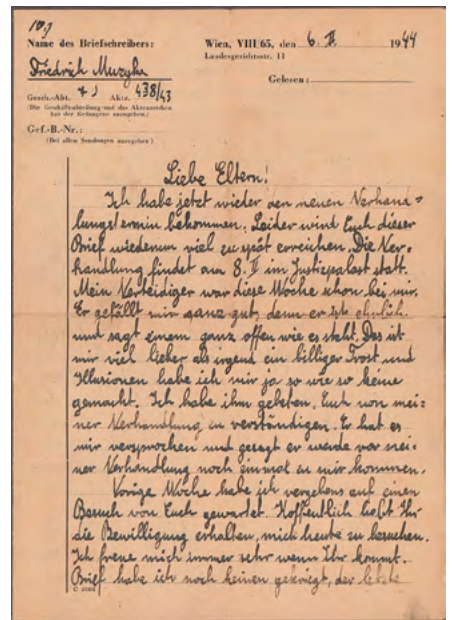 10.)
Name des Briefschreibers: Wien, VIII/65, den 6. II. 1944
Landesgerichtsstr. 11
Friedrich Muzyka
Gelesen:
Gesch.-Abt. Aktz. 438/43
(Die Geschäftsabteilung und das Aktenzeichen
hat der Gefangene anzugeben.)
Gef.-B.-Nr.:
(Bei allen Sendungen anzugeben)
Liebe Eltern!
Ich habe jetzt wieder den neuen Verhand=
lungstermin bekommen. Leider wird Euch dieser
Brief wiederum viel zu spät erreichen. Die Ver-
handlung findet am 8. II im Justizpalast statt.
Mein Verteidiger war diese Woche schon bei mir.
Er gefällt mir ganz gut, denn er ist ehrlich
und sagt einem ganz offen wie es steht. Das ist
mir viel lieber als irgend ein billiger Trost und
Illusionen habe ich mir ja so wie so keine
gemacht. Ich habe ihm gebeten, Euch von mei=
ner Verhandlung zu verständigen. Er hat es
mir versprochen und gesagt er werde vor mei-
ner Verhandlung noch einmal zu mir kommen.
Vorige Woche habe ich vergebens auf einen
Besuch von Euch gewartet. Hoffentlich habt Ihr
die Bewilligung erhalten, mich heute zu besuchen.
Ich freue mich immer sehr wenn Ihr kommt.
Brief habe ich noch keinen gekriegt, der letzte